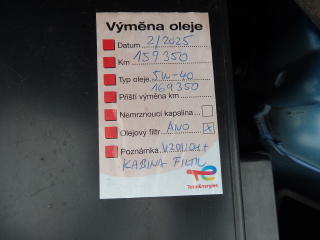 Výměna oleje
Datum 2/2025
Km 159350
Typ oleje 5W-40
169350
Příští výměna km
Nemrznoucí kapalina
Olejový filtr ANO X
Poznámka VZDUCH+
KABINA FILTR
TotalEnergies